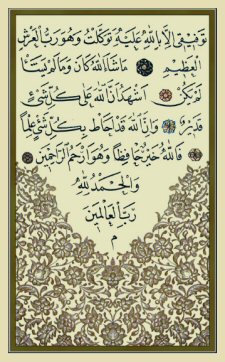 توفيقي الا بالله عليه توكلت وهو رب العرش
العظيم ما شاء الله كان وما لم يشأ
لم يكن اشهد ان الله على كل شيء
قدير وان الله قد احاط بكل شيء علما
فالله خير حافظا وهو ارحم الراحمين
والحمد لله
رب العالمين
م